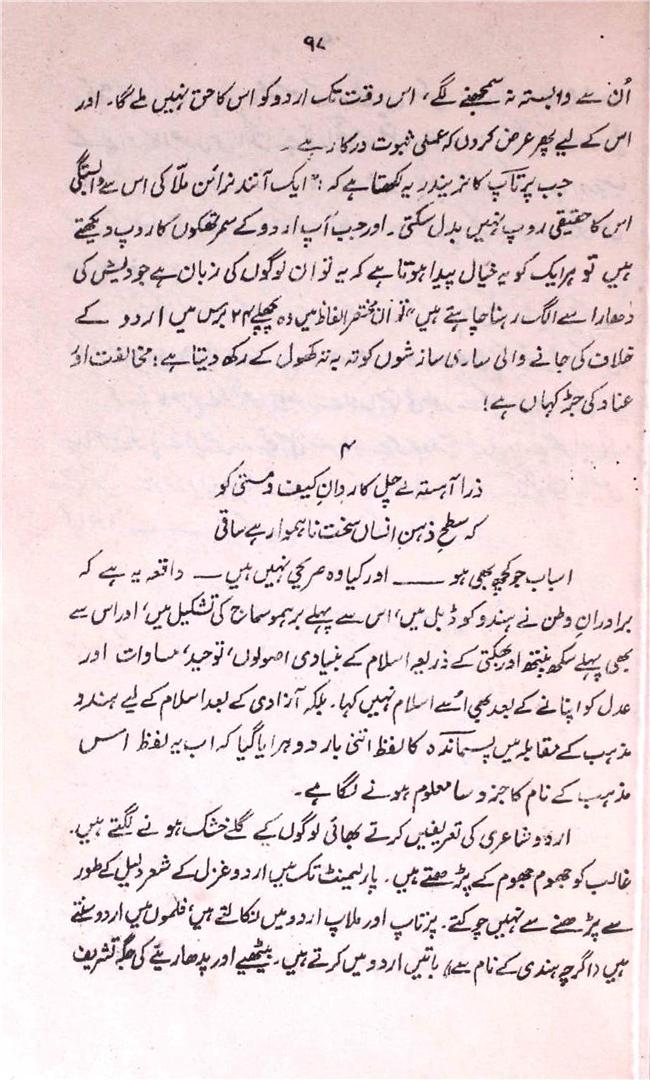 ۹۸
اُن سے وابستہ نہ سمجھنے لگے، اس وقت تک اردو کو اس کا حق نہیں ملے گا۔ اور
اس کے لیے پھر عرض کردوں کہ عملی ثبوت درکار ہے۔
جب پرتاپ کا نریندر یہ لکھتا ہے کہ: "ایک آنند نرائن ملّا کی اس سے وابستگی
اس کا حقیقی روپ نہیں بدل سکتی۔ اور جب آپ اردو کے سمرتھکوں کا روپ دیکھتے
ہیں تو ہر ایک کو یہ خیال پیدا ہوتا ہے کہ یہ تو ان لوگوں کی زبان ہے جو دیش کی
دھارا سے الگ رہنا چاہتے ہیں" تو ان مختصر الفاظ میں وہ پچھلے ۲۴ برس میں اردو کے
خلاف کی جانے والی ساری سازشوں کو تہ بہ تہ کھول کے رکھ دیتا ہے؛ مخالفت اور
عناد کی جڑ کہاں ہے!
۴
ذرا آہستہ لے چل کاروانِ کیف و مستی کو
کہ سطحِ ذہنِ انساں سخت ناہموار ہے ساقی
اسباب جو کچھ بھی ہو —— اور کیا وہ صریحی نہیں ہیں — واقعہ یہ ہے کہ
برادرانِ وطن نے ہندو کوڈ بل میں، اس سے پہلے برہمو سماج کی تشکیل میں، اور اس سے
بھی پہلے سکھ پنتھ اور بھگتی کے ذریعہ اسلام کے بنیادی اصولوں، توحید، مساوات اور
عدل کو اپنانے کے بعد بھی اُسے اسلام نہیں کہا۔ بلکہ آزادی کے بعد اسلام کے لیے ہندو
مذہب کے مقابلہ میں پسماندہ کا لفظ اتنی بار دوہرایا گیا کہ اب یہ لفظ اس
مذہب کے نام کا جزو سا معلوم ہونے لگا ہے۔
اردو شاعری کی تعریفیں کرتے بھائی لوگوں کے گلے خشک ہونے لگتے ہیں۔
غالب کو جھوم جھوم کے پڑھتے ہیں۔ پارلیمنٹ تک میں اردو غزل کے شعر دلیل کے طور
سے پڑھنے سے نہیں چوکتے۔ پرتاپ اور ملاپ اردو میں نکالتے ہیں، فلموں میں اردو سنتے
ہیں (اگرچہ ہندی کے نام سے) باتیں اردو میں کرتے ہیں۔ بیٹھیے اور پدھاریئے کی جگہ تشریف